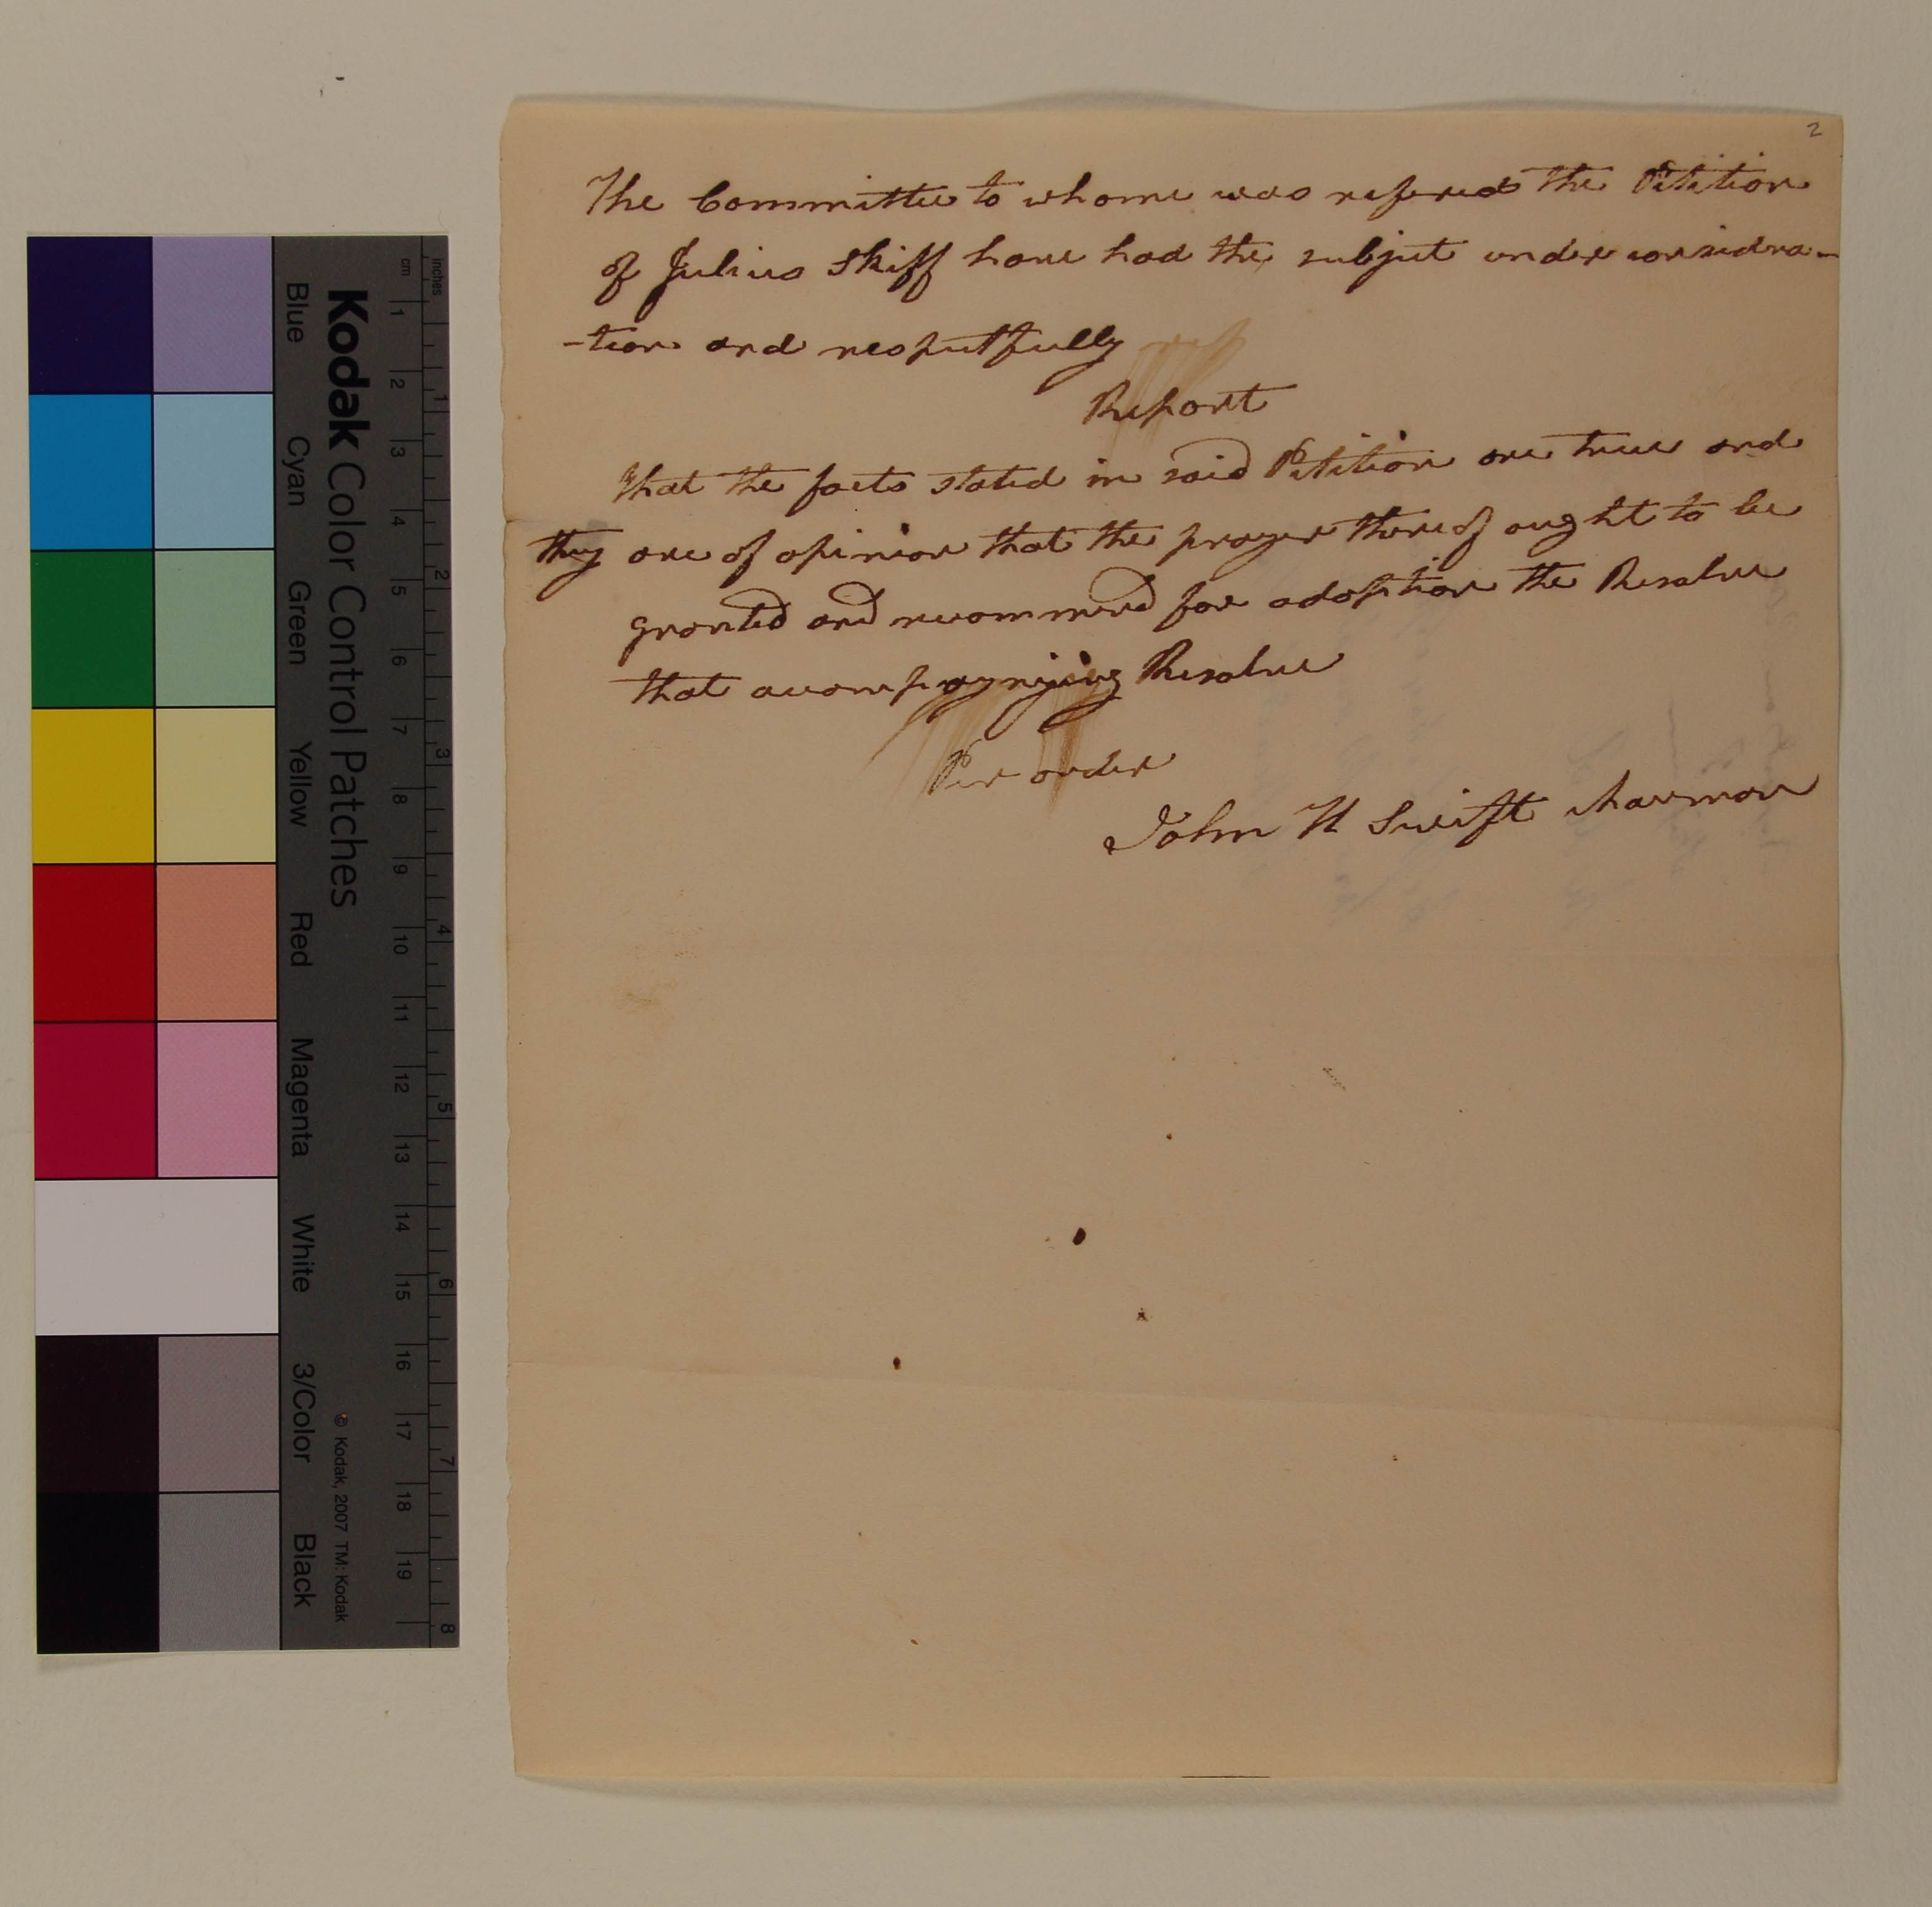 2
The Committee to whome was refered the Petition
of Julius Skiff have had the subject under considra-
-tion and respectfully
Report
That the facts stated in said Petition are true and
they are of opinion that the prayer thereof ought to be
granted and recommend for adoption the Resolve
that accompanying Resolve
Per order
John H Swift chairman
inches
cm
1 2 3 4 5 6 7 8 9 10 11 12 13 14 15 16 17 18 19
1 2 3 4 5 6 7 8
Kodak Color Control Patches
© Kodak, 2007 TM: Kodak
Blue Cyan Green Yellow Red Magenta White 3/Color Black